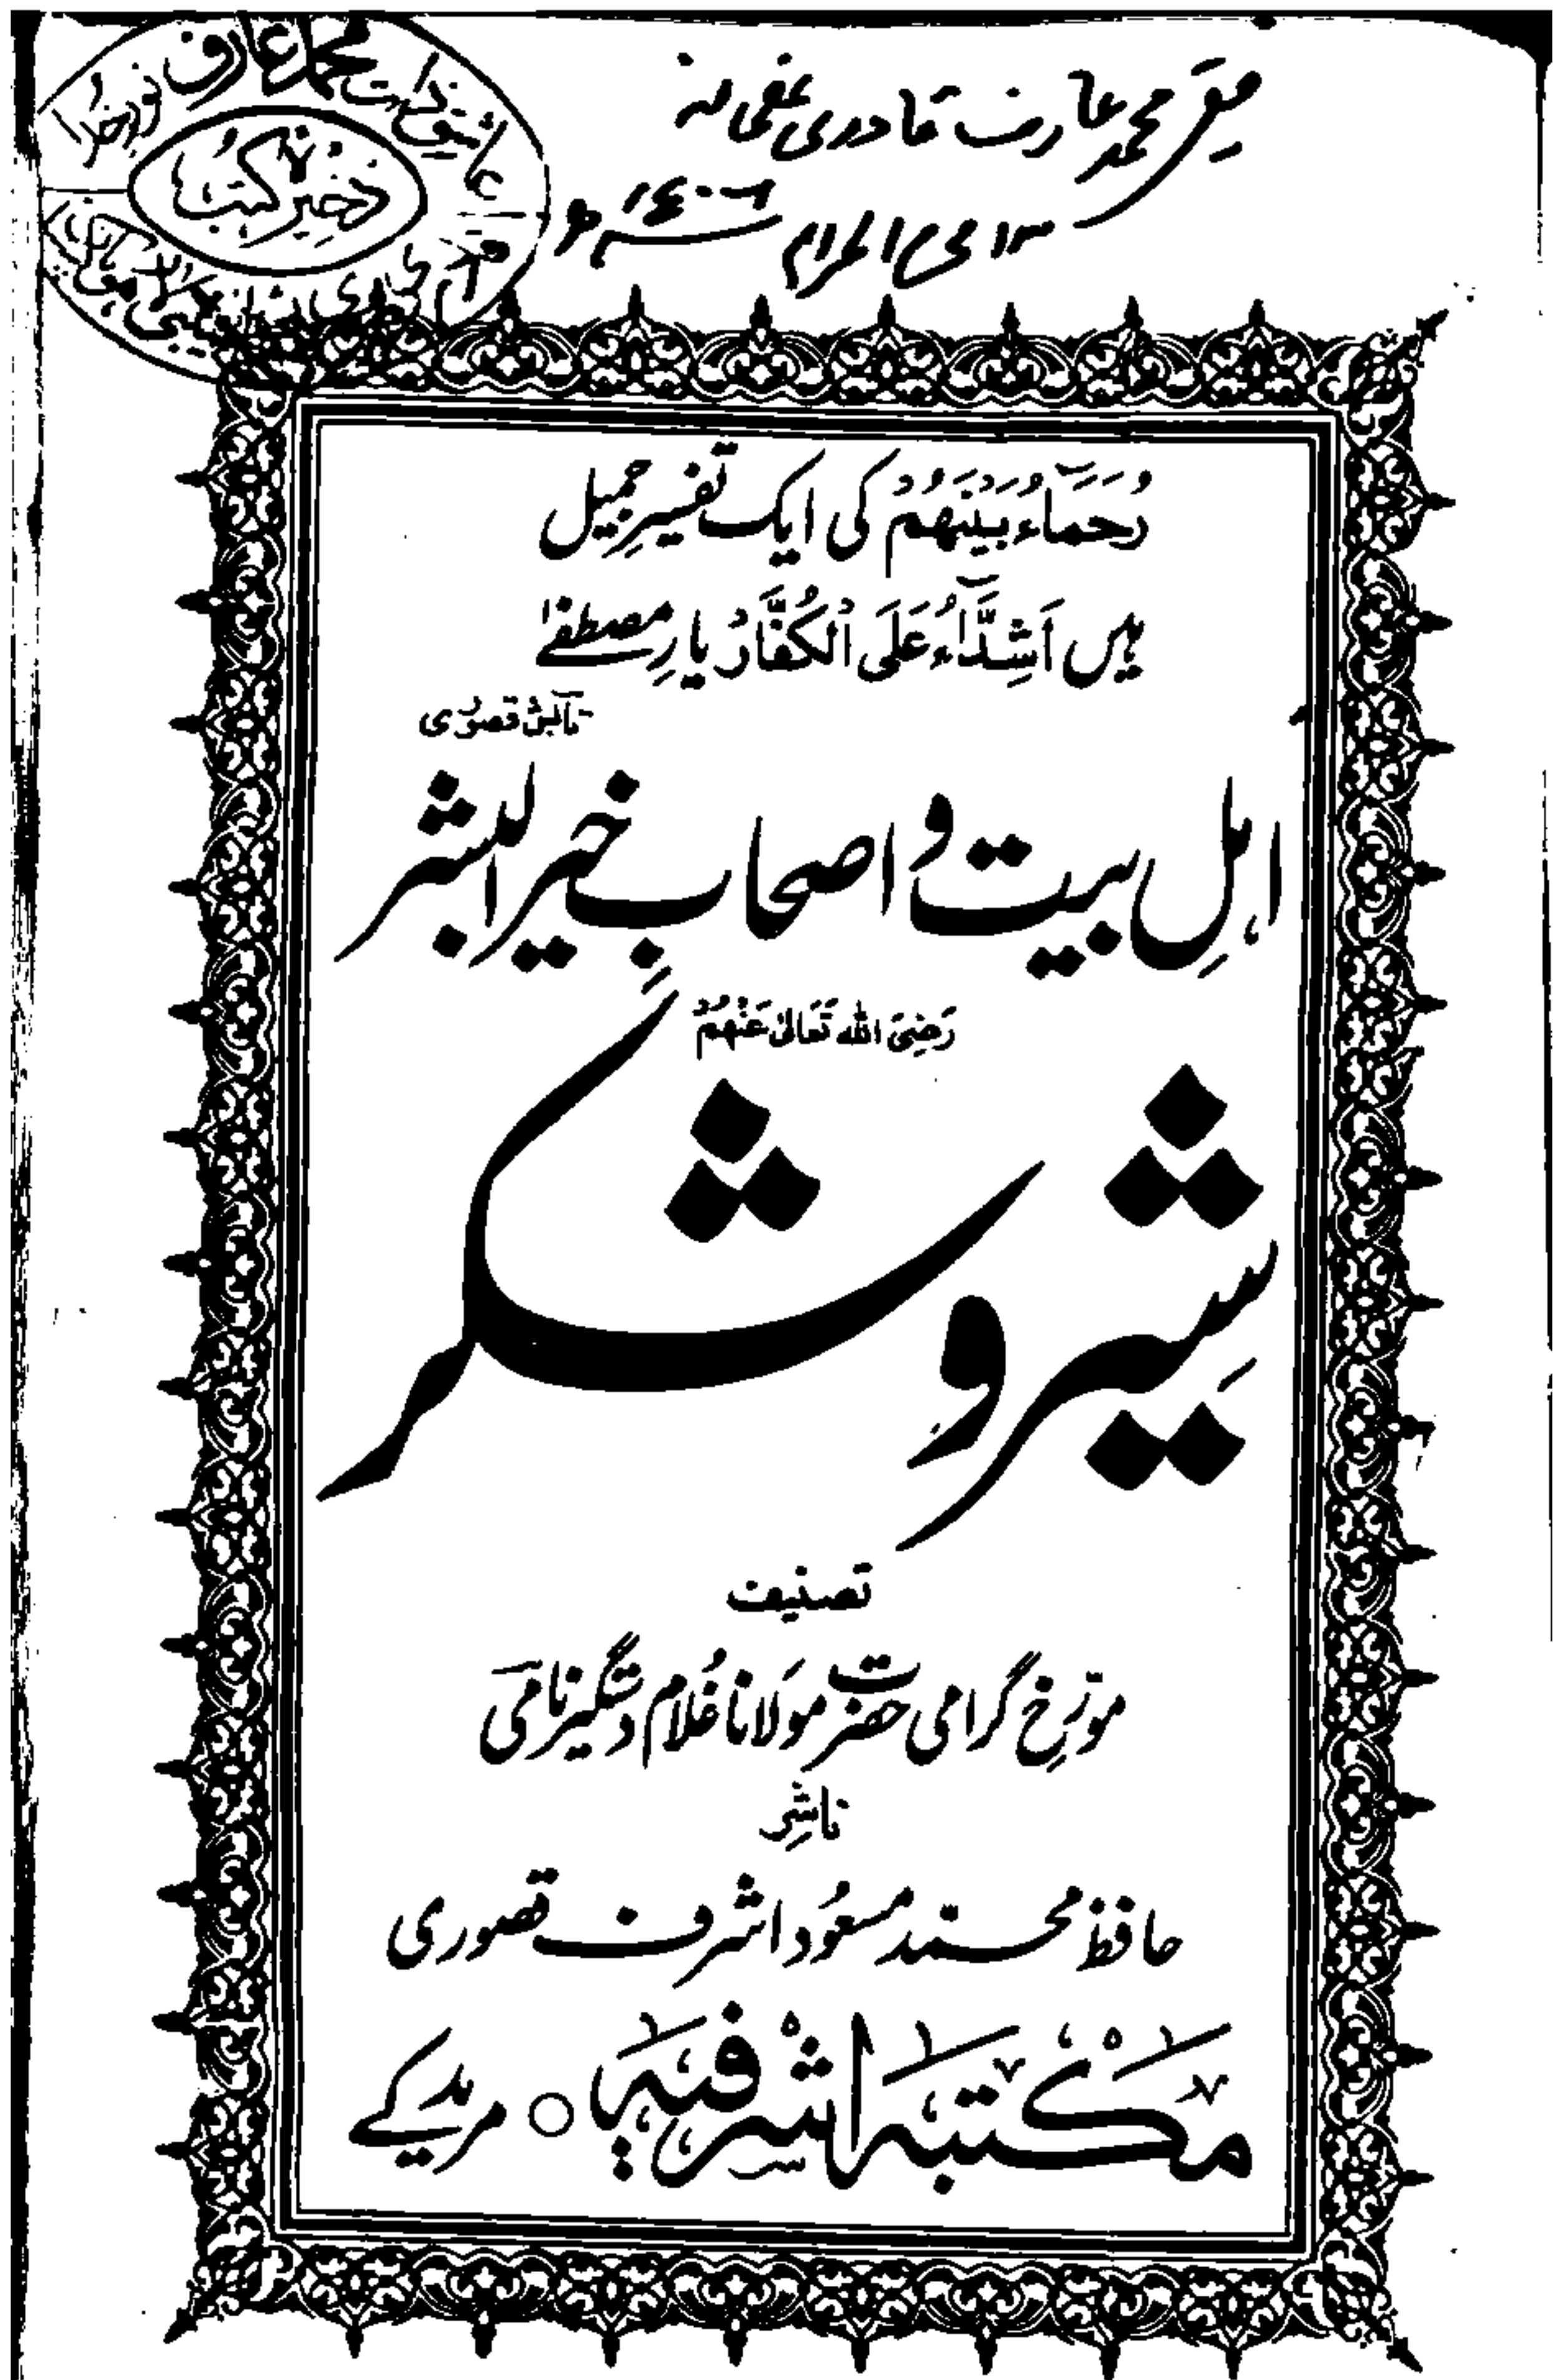 فقیر محمد عارف قادری عفی عنہ
۱۳ محرم الحرام ۱٤۰٦ھ
ذخیرہ کتب
محمد عارف
رُحَمَآءُ بَيْنَهُمْ کی ایک تفسیرِ جمیل
ہیں اَشِدَّآءُ عَلَى الْكُفَّارُ یارِ مصطفےٰ
تابش قصوری
اہلِ بیت و اصحابِ خیر البشر
رَضِیَ اللہ تَعَالیٰ عَنْهُمْ
شیر و شکر
تصنیف
مورّخِ گرامی حضرت مولانا غلام دستگیر نامی
ناشر
حافظ محمد مسعود اشرف قصوری
مکتبہ اشرفیہ ○ مریدکے